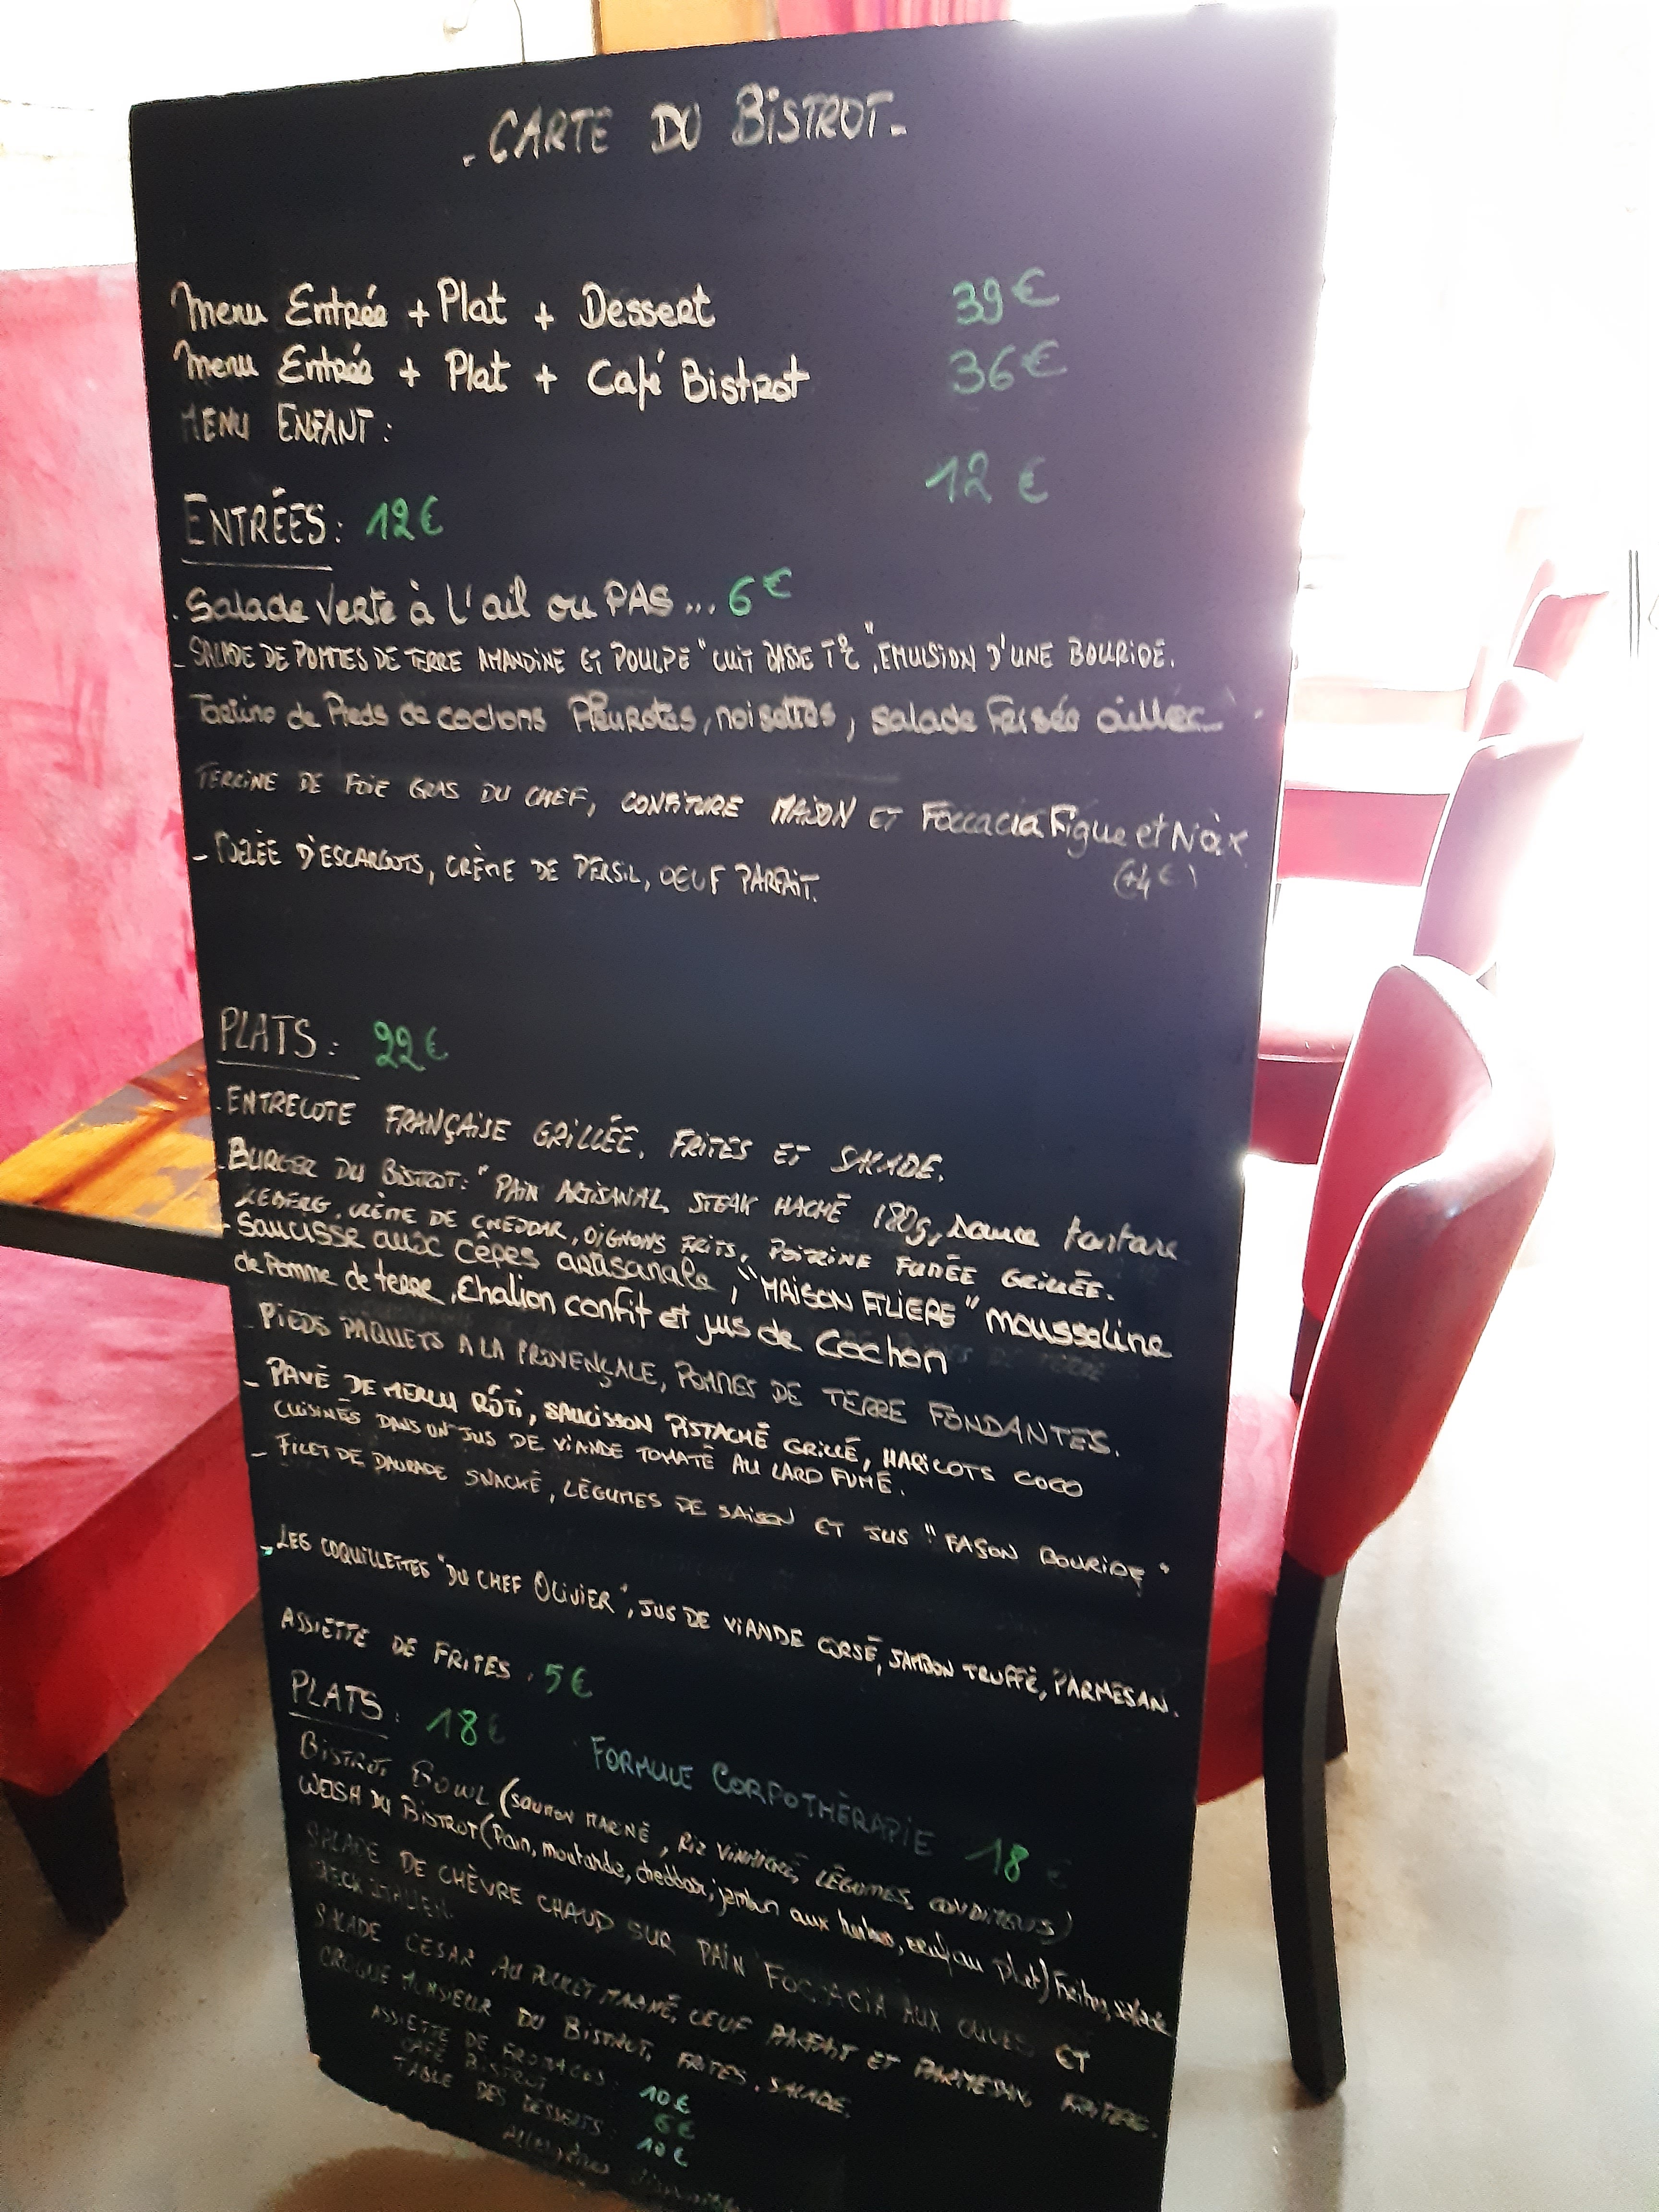 - CARTE DU BISTROT -
Menu Entrée + Plat + Dessert 39€
Menu Entrée + Plat + Café Bistrot 36€
MENU ENFANT : 12 €
ENTRÉES : 12€
. Salade Verte à L'ail ou PAS... 6€
- SALADE DE POMMES DE TERRE AMANDINE ET POULPE "CUIT BASSE T°C", EMULSION D'UNE BOURIDE.
de Pieds de cochons Pleurotes, noisettes, salade Frisée
TERRINE DE FOIE GRAS DU CHEF, CONFITURE MAISON ET Foccacia Figue et Noix
(+4€)
- POELÉE D'ESCARGOTS, CRÈME DE PERSIL, OEUF PARFAIT.
PLATS : 22€
. ENTRECOTE FRANÇAISE GRILLÉE, FRITES ET SALADE.
- BURGER DU BISTROT : "PAIN ARTISANAL, STEAK HACHÉ 180g, sauce tartare
ICEBERG, CRÈME DE CHEDDAR, OIGNONS FRITS, POITRINE FUMÉE GRILLÉE.
- Saucisse aux Cêpes artisanale, "MAISON FILIERE" mousseline
de Pomme de terre, Ehalion confit et jus de Cochon
- PIEDS PAQUETS A LA PROVENÇALE, POMMES DE TERRE FONDANTES.
- PAVÉ DE MERLU RÔTI, SAUCISSON PISTACHÉ GRILLÉ, HARICOTS COCO
CUISINÉS DANS UN JUS DE VIANDE TOMATÉ AU LARD FUMÉ.
- FILET DE DAURADE SNACKÉ, LÉGUMES DE SAISON ET JUS "FAÇON BOURIDE"
- LES COQUILLETTES "DU CHEF OLIVIER", JUS DE VIANDE CORSÉ, JAMBON TRUFFÉ, PARMESAN.
ASSIETTE DE FRITES . 5€
PLATS : 18€ FORMULE CORPOTHÈRAPIE 18 €
BISTROT BOWL (SAUMON MARINÉ, RIZ VINAIGRÉ, LÉGUMES, CONDIMENTS)
WELSH DU BISTROT (Pain, moutarde, cheddar, jambon aux herbes, œuf au plat) Frites, salade
SALADE DE CHÈVRE CHAUD SUR PAIN FOCCACIA AUX OLIVES ET
SPECK ITALIEN.
SALADE CESAR AU POULET MARINÉ, OEUF PARFAIT ET PARMESAN,
CROQUE MONSIEUR DU BISTROT, FRITES, SALADE.
ASSIETTE DE FROMAGES : 10€
CAFÉ BISTROT 6€
TABLE DES DESSERTS : 10€